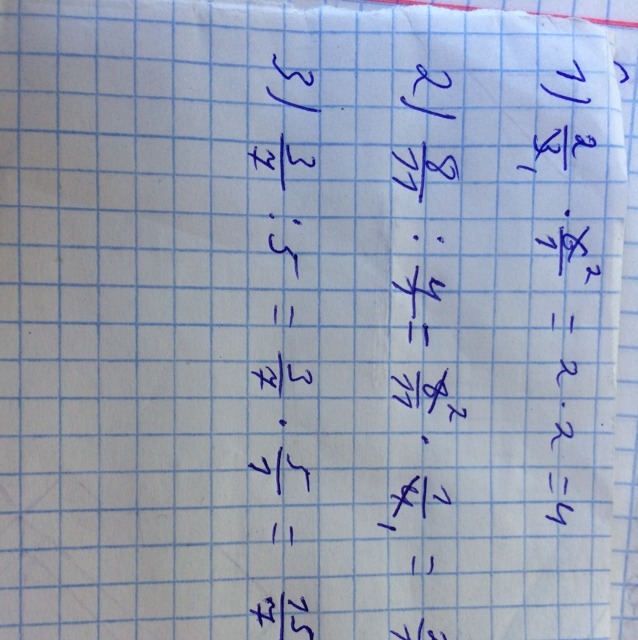 1) 2/3 · 6/1 = 2 · 2 = 4
2) 8/11 : 4/1 = 8/11 · 1/4 =
3) 3/7 : 5 = 3/7 · 5/1 = 15/7